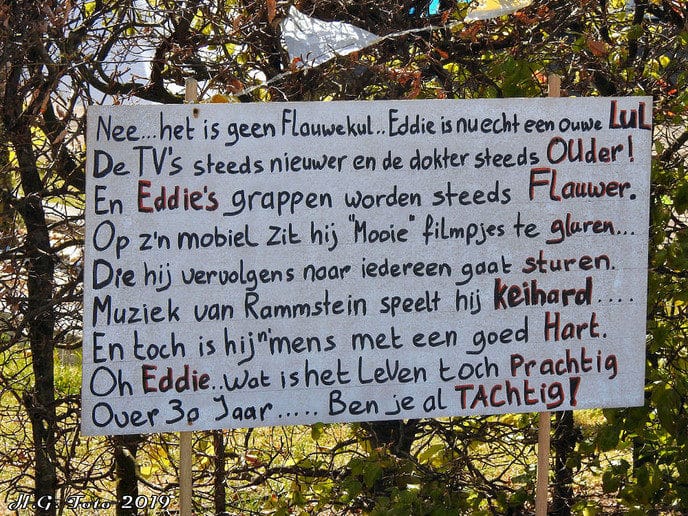 Nee...het is geen Flauwekul..Eddie is nu echt een ouwe LuL
De TV's steeds nieuwer en de dokter steeds OUder!
En Eddie's grappen worden steeds Flauwer.
Op z'n mobiel zit hij "Mooie" filmpjes te gluren...
Die hij vervolgens naar iedereen gaat sturen.
Muziek van Rammstein speelt hij Keihard....
En toch is hij 'n mens met een goed Hart.
Oh Eddie..wat is het Leven toch Prachtig
Over 30 Jaar...... Ben je al TAChtig!
H.G. Foto 2019